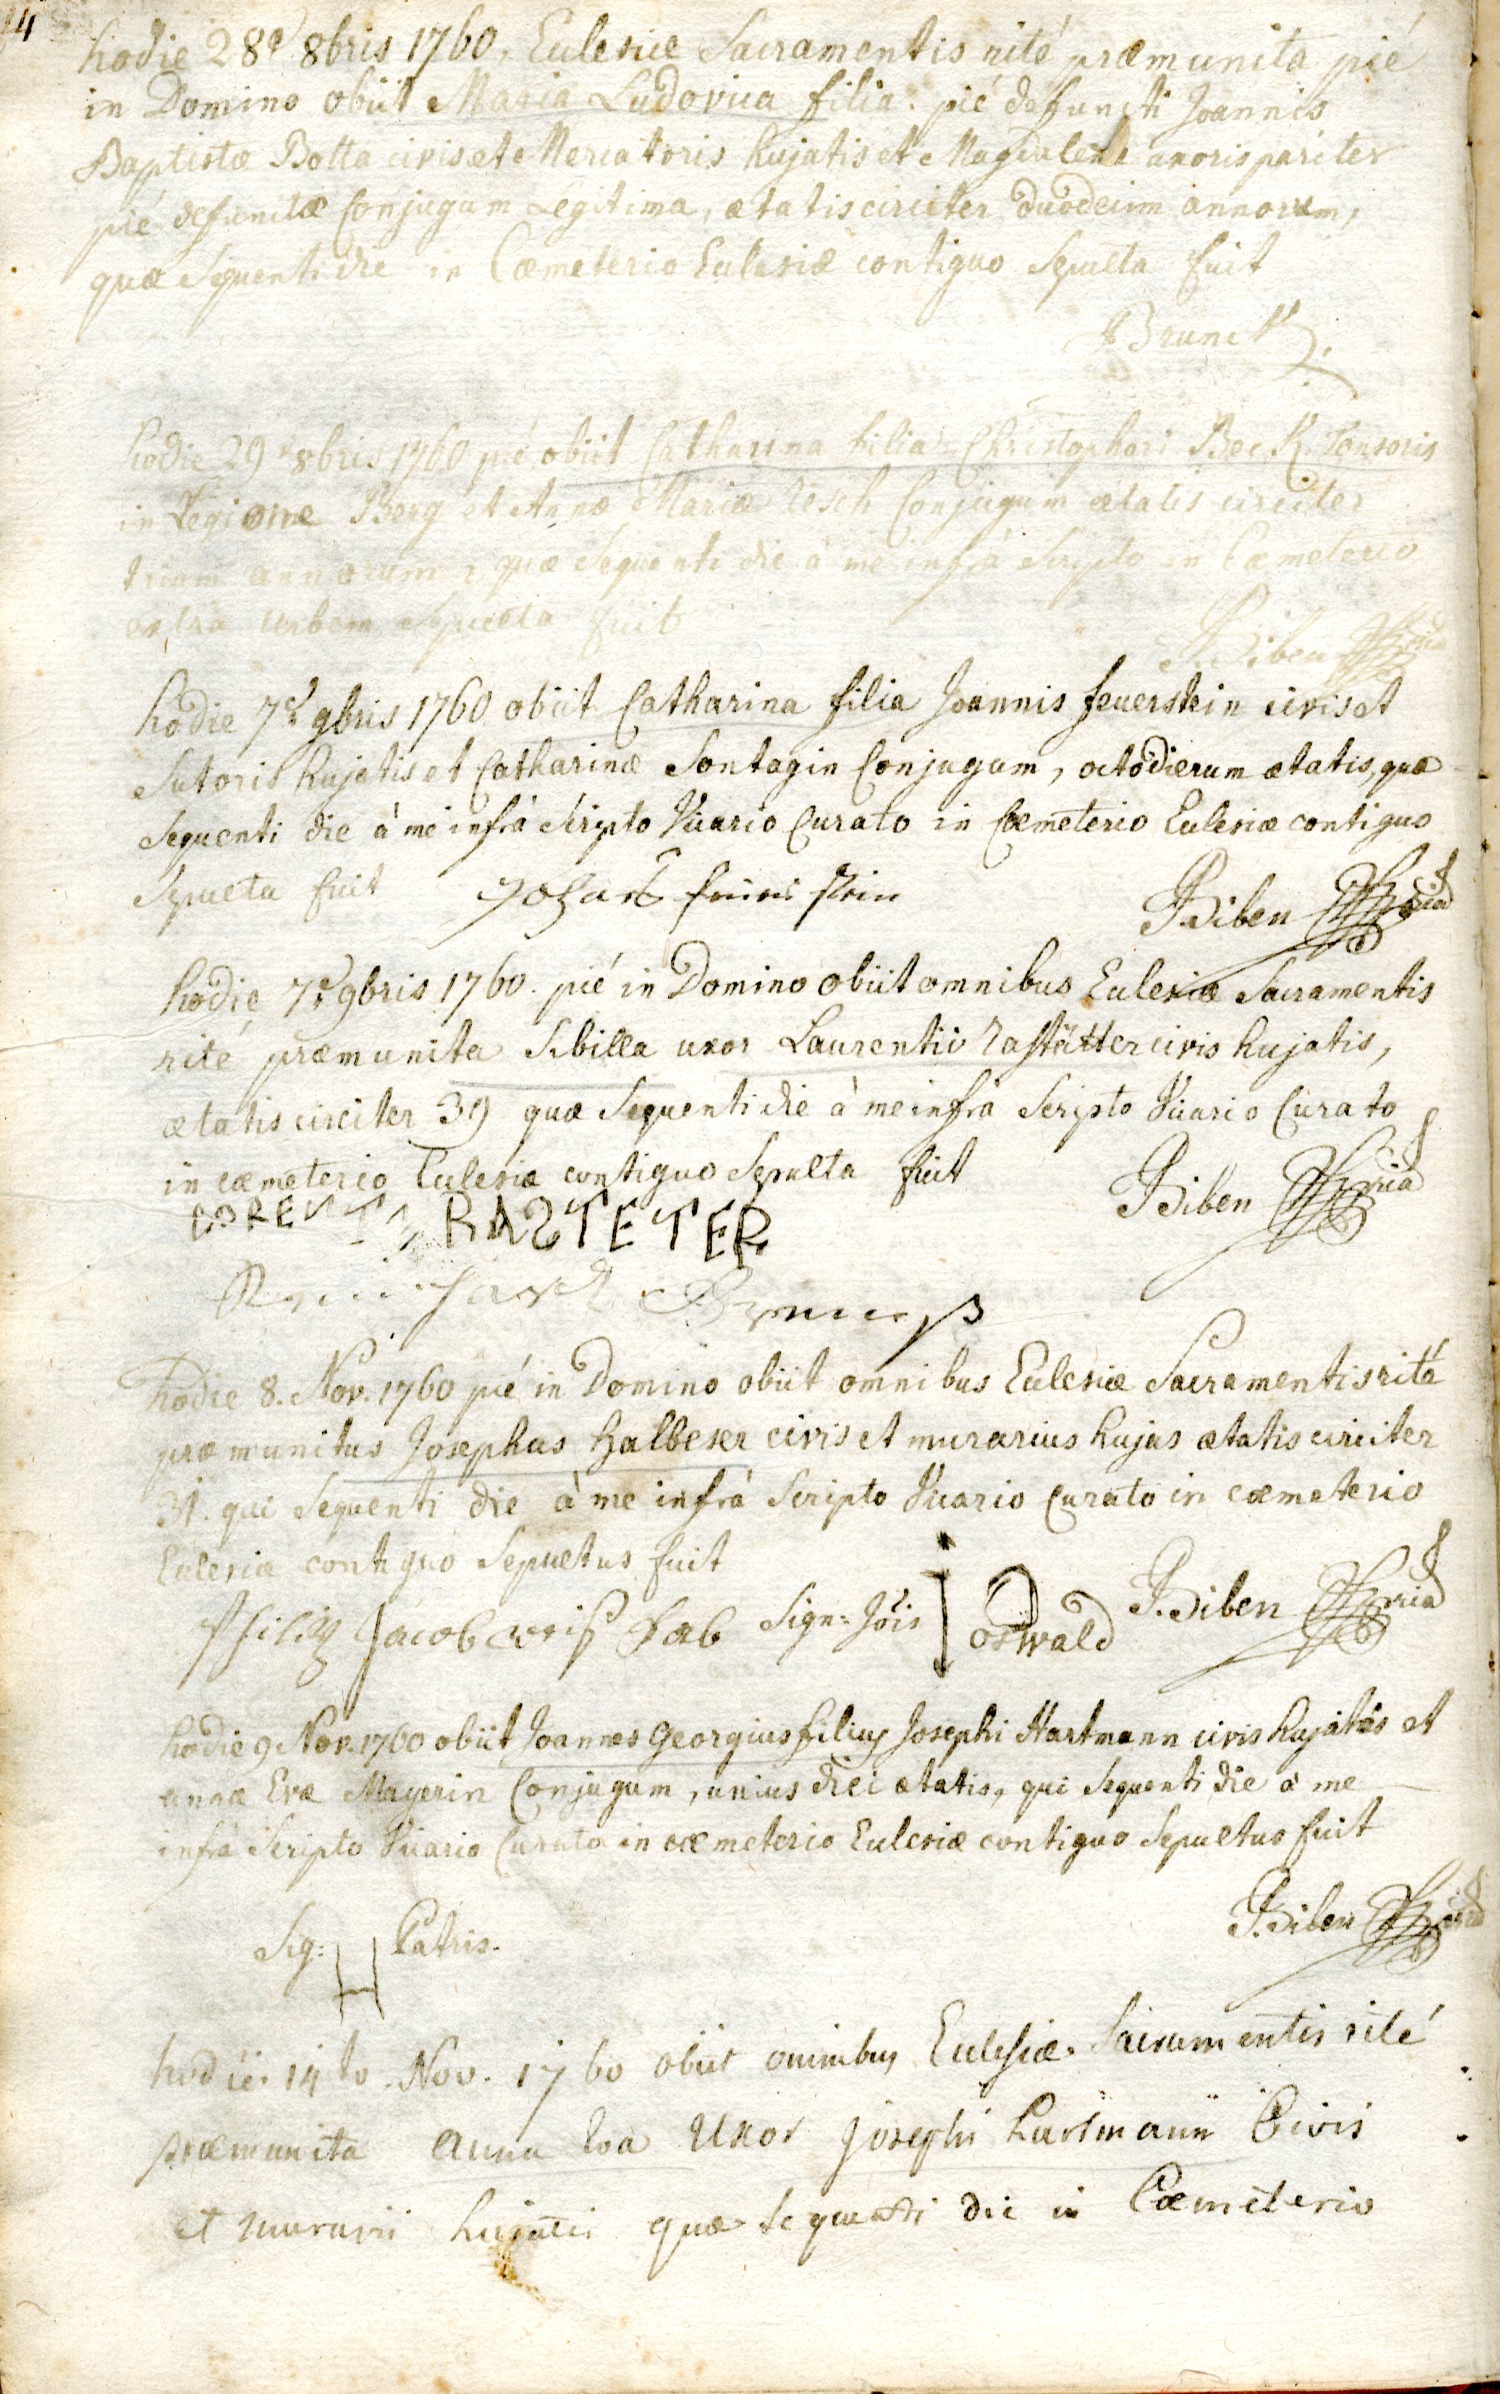 4
hodie 28a 8bris 1760. Ecclesiæ Sacramentis rité præmunita pié
in Domino obiit Maria Ludovica filia pié defuncti Joannis
Baptistæ Botta civis et Mercatoris hujatis et Magdalenæ uxoris pariter
pié defunctæ Conjugum Legitima, ætatis circiter duodecim annorum,
quæ Sequenti die in Cœmeterio Ecclesiæ contiguo Sepulta fuit
Brunck
hodie 29 8bris 1760 pié obiit Catharina filia Christophori Beck Tonsoris
in Legione Berg et Annæ Mariæ Resch Conjugum ætatis circiter
trium annorum, quæ Sequenti die à me infrà Scripto in Cœmeterio
extra urbem Sepulta fuit
P. Biben
hodie 7a 9bris 1760 obiit Catharina filia Joannis feuerstein civis et
Sutoris hujatis et Catharinæ Sontagin Conjugum, octo dierum ætatis, quæ
Sequenti die à me infrà Scripto Vicario Curato in Cœmeterio Ecclesiæ contiguo
Sepulta fuit
P. Biben
hodie 7a 9bris 1760. pié in Domino obiit omnibus Ecclesiæ Sacramentis
rité præmunita Sibilla uxor Laurentii Rastätter civis hujatis,
ætatis circiter 39 quæ Sequenti die à me infrà Scripto Vicario Curato
in cœmeterio Ecclesiæ contiguo Sepulta fuit P. Biben
LORENTZ RASTETER
hodie 8. Nov. 1760 pié in Domino obiit omnibus Ecclesiæ Sacramentis rité
præmunitus Josephus Halbexer civis et murarius hujas ætatis circiter
31. qui Sequenti die à me infrà Scripto Vicario Curato in cœmeterio
Ecclesiæ contiguo Sepultus fuit
Jacob Sign: Jois oswald P. Biben
hodie 9 Nov. 1760 obiit Joannes Georgius filius Josephi Hartmann civis hujatis et
annæ Evæ Mayerin Conjugum, unius diei ætatis, qui Sequenti die à me
infrà Scripto Vicario Curato in cœmeterio Ecclesiæ contiguo Sepultus fuit
P. Biben
Sig: H Patris.
hodie 14to Nov. 1760 obiit omnibus Ecclesiæ Sacramentis rité
præmunita Anna Eva Uxor Josephi Hartmann Civis
et murarii hujatis quæ sequenti die in Cœmeterio